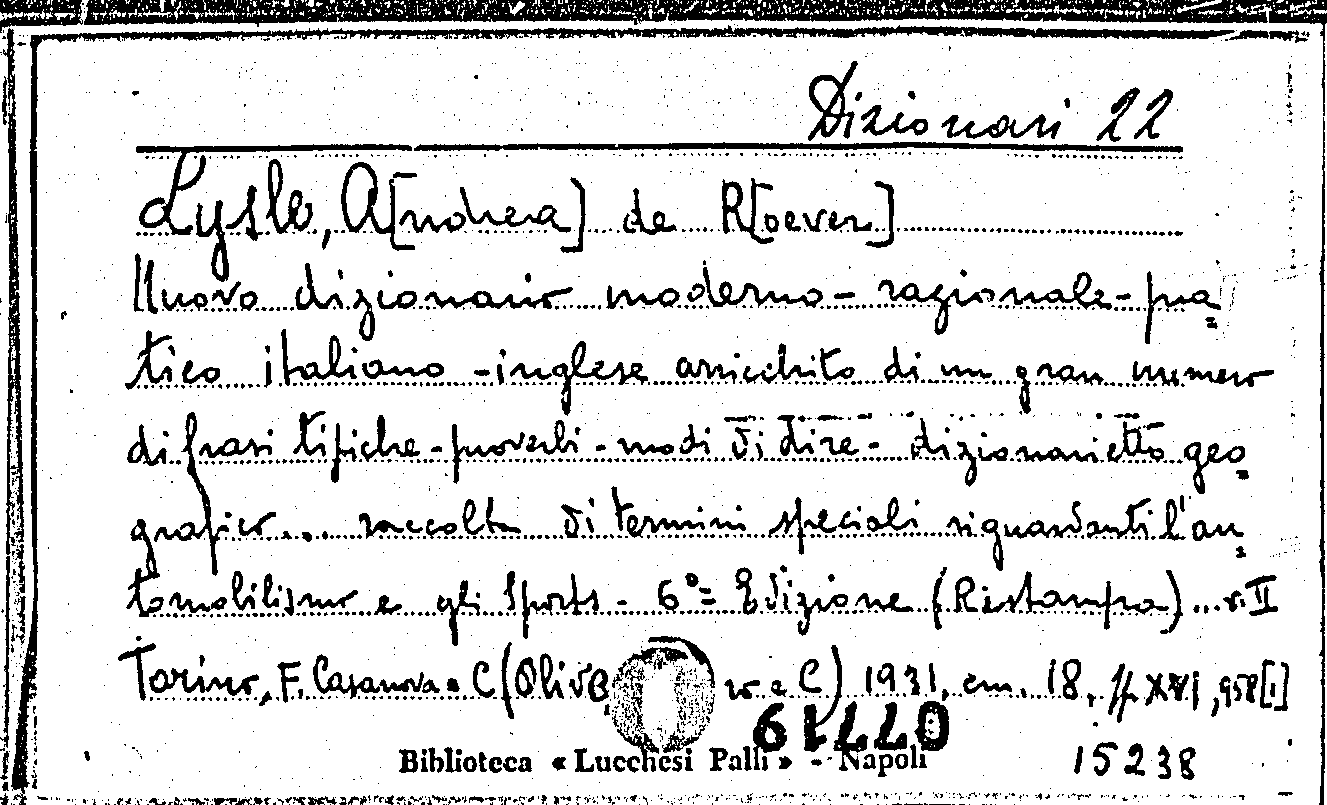 Dizionari 22
Lysle, A[ndrea] de R[oever]
Nuovo dizionario moderno - razionale - pra=
tico italiano - inglese arricchito di un gran numero
di frasi tipiche - proverbi - modi di dire - dizionarietto geo=
grafico... raccolta di termini speciali riguardanti l'au=
tomobilismo e gli Sports - 6ª= Edizione (Ristampa)... v. II
Torino, F. Casanova e C (Olive ro e C) 1931, cm. 18, pp. XVI, 958 [1]
Biblioteca « Lucchesi Palli » - Napoli
15238